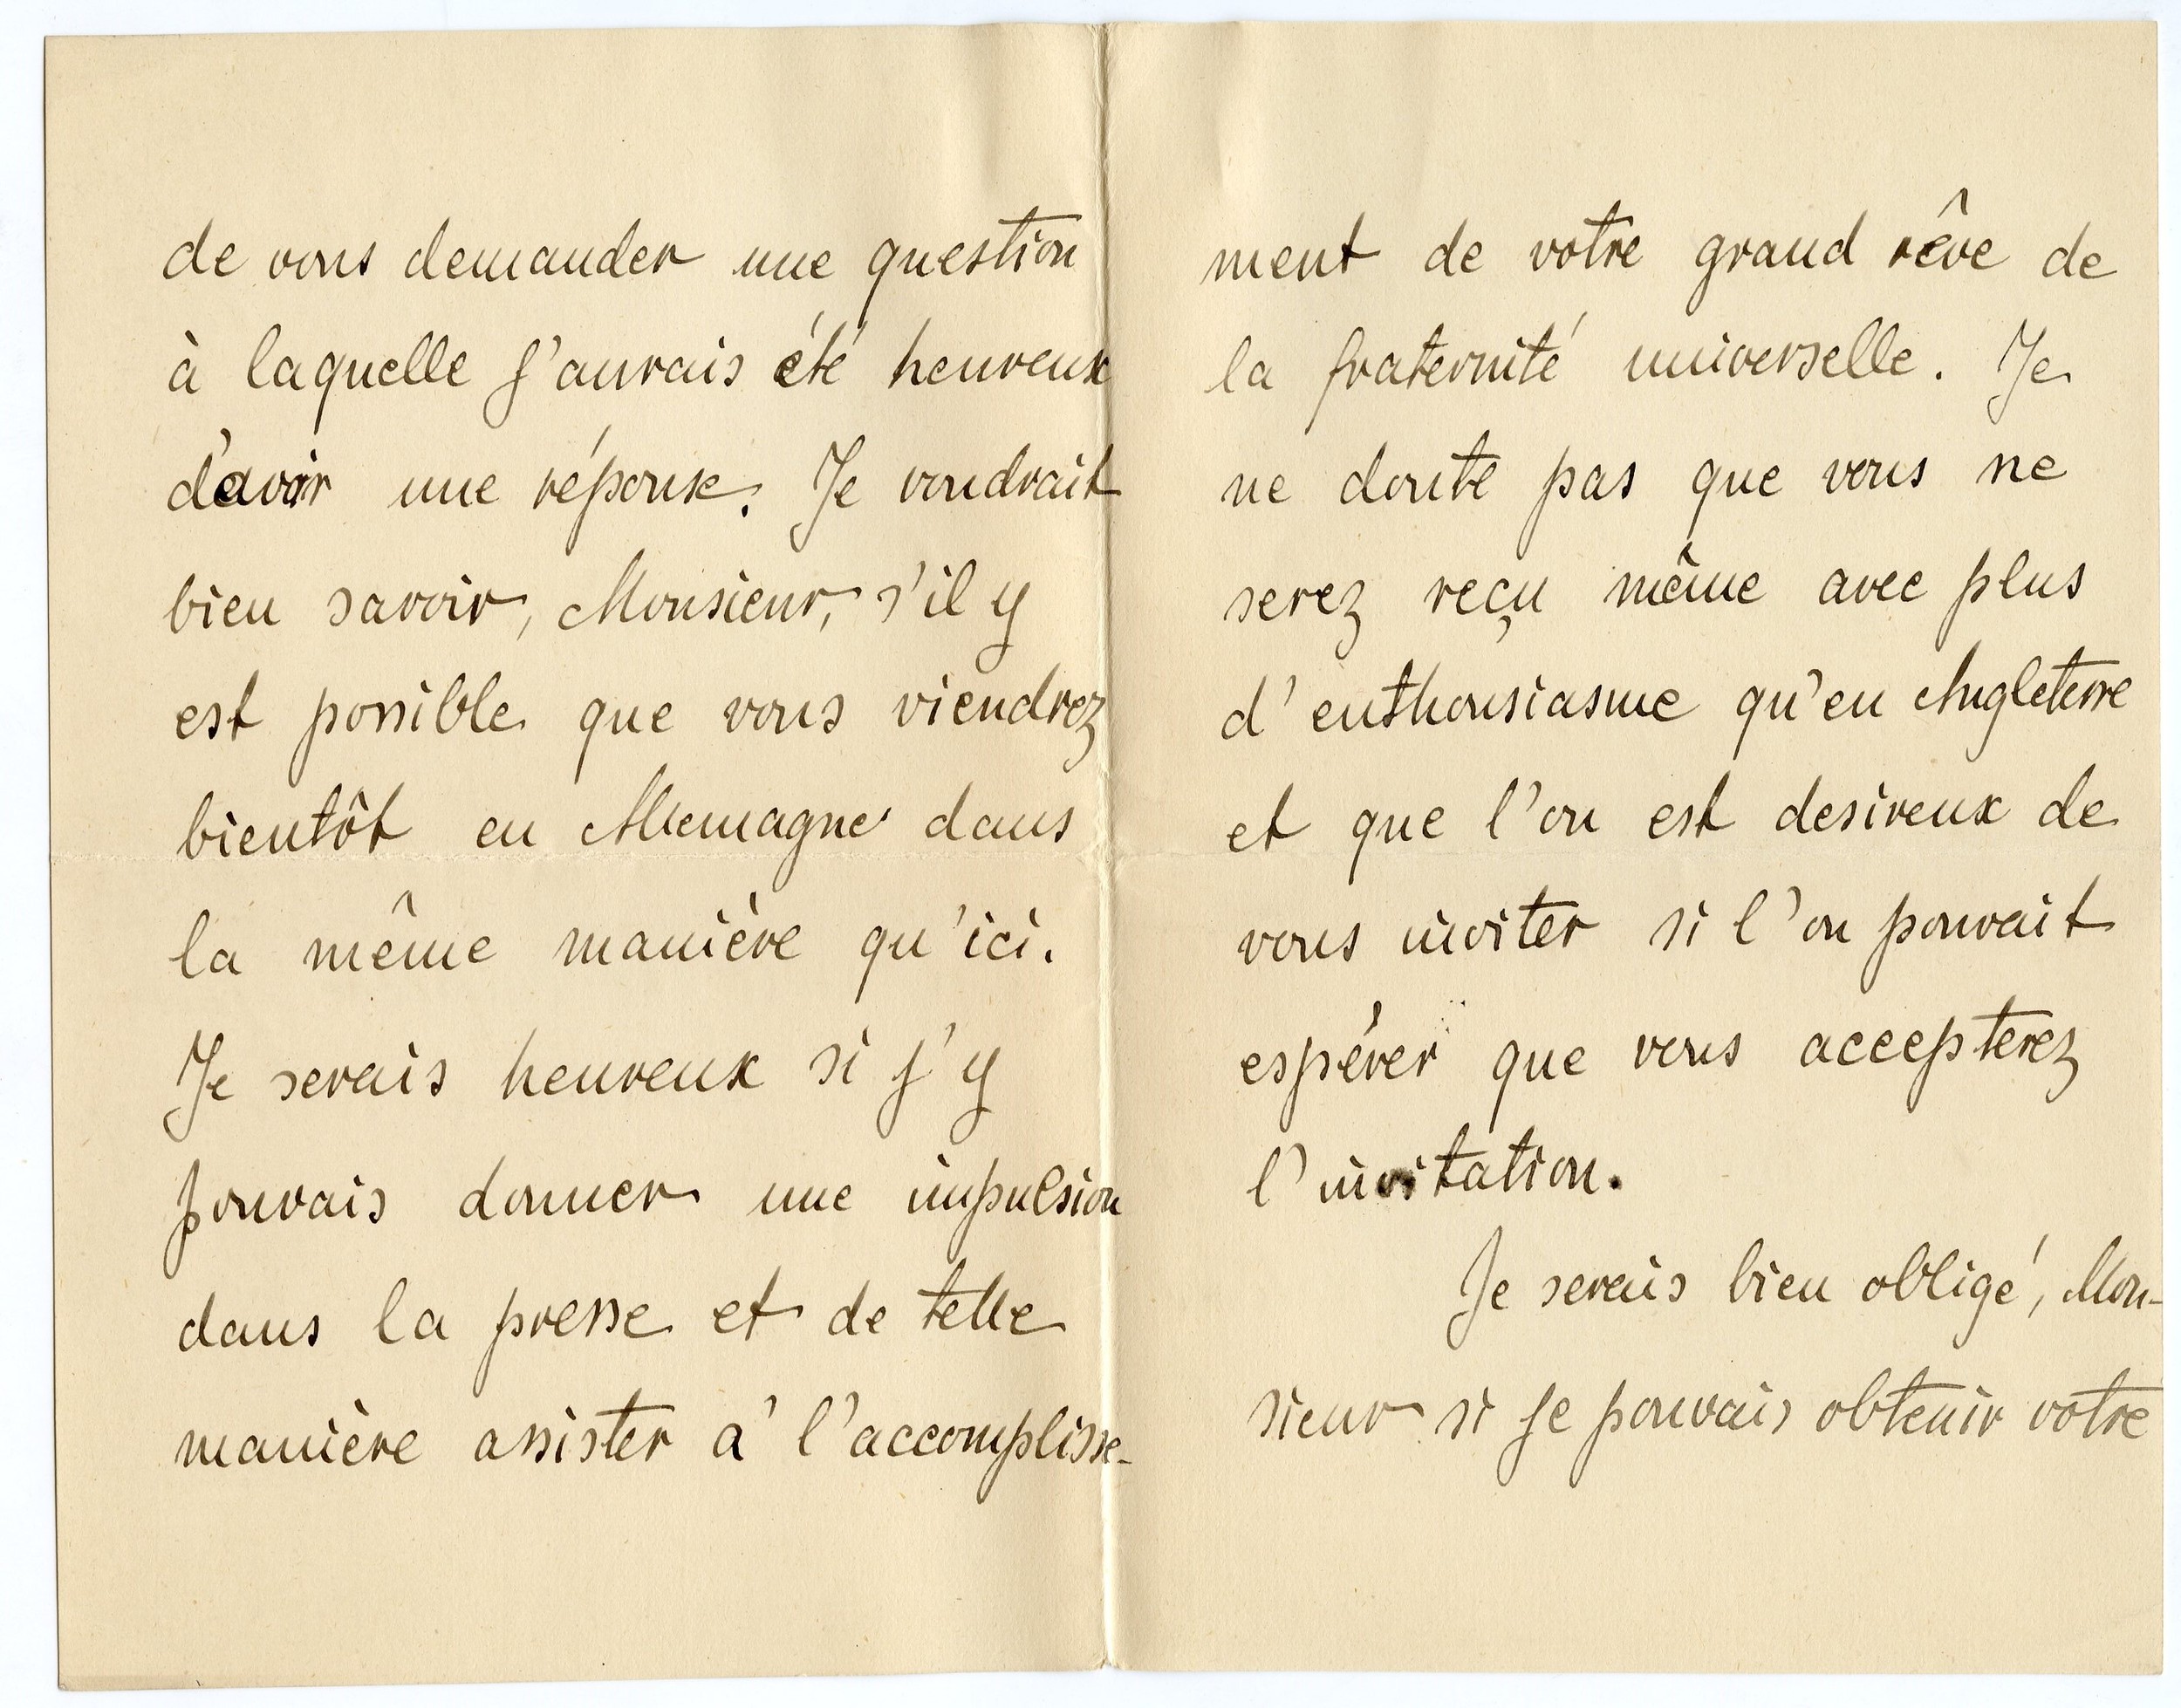 de vous demander une question
à laquelle j'aurais été heureux
d'avoir une réponse. Je voudrait
bien savoir, Monsieur, s'il y
est possible que vous viendrez
bientôt en Allemagne dans
la même manière qu'ici.
Je serais heureux si j'y
pouvais donner une impulsion
dans la presse et de telle
manière assister à l'accomplisse-
ment de votre grand rêve de
la fraternité universelle. Je
ne doute pas que vous ne
serez reçu même avec plus
d'enthousiasme qu'en Angleterre
et que l'on est desireux de
vous inviter si l'on pouvait
espérer que vous accepterez
l'invitation.
Je serais bien obligé, Mon-
sieur si je pouvais obtenir votre